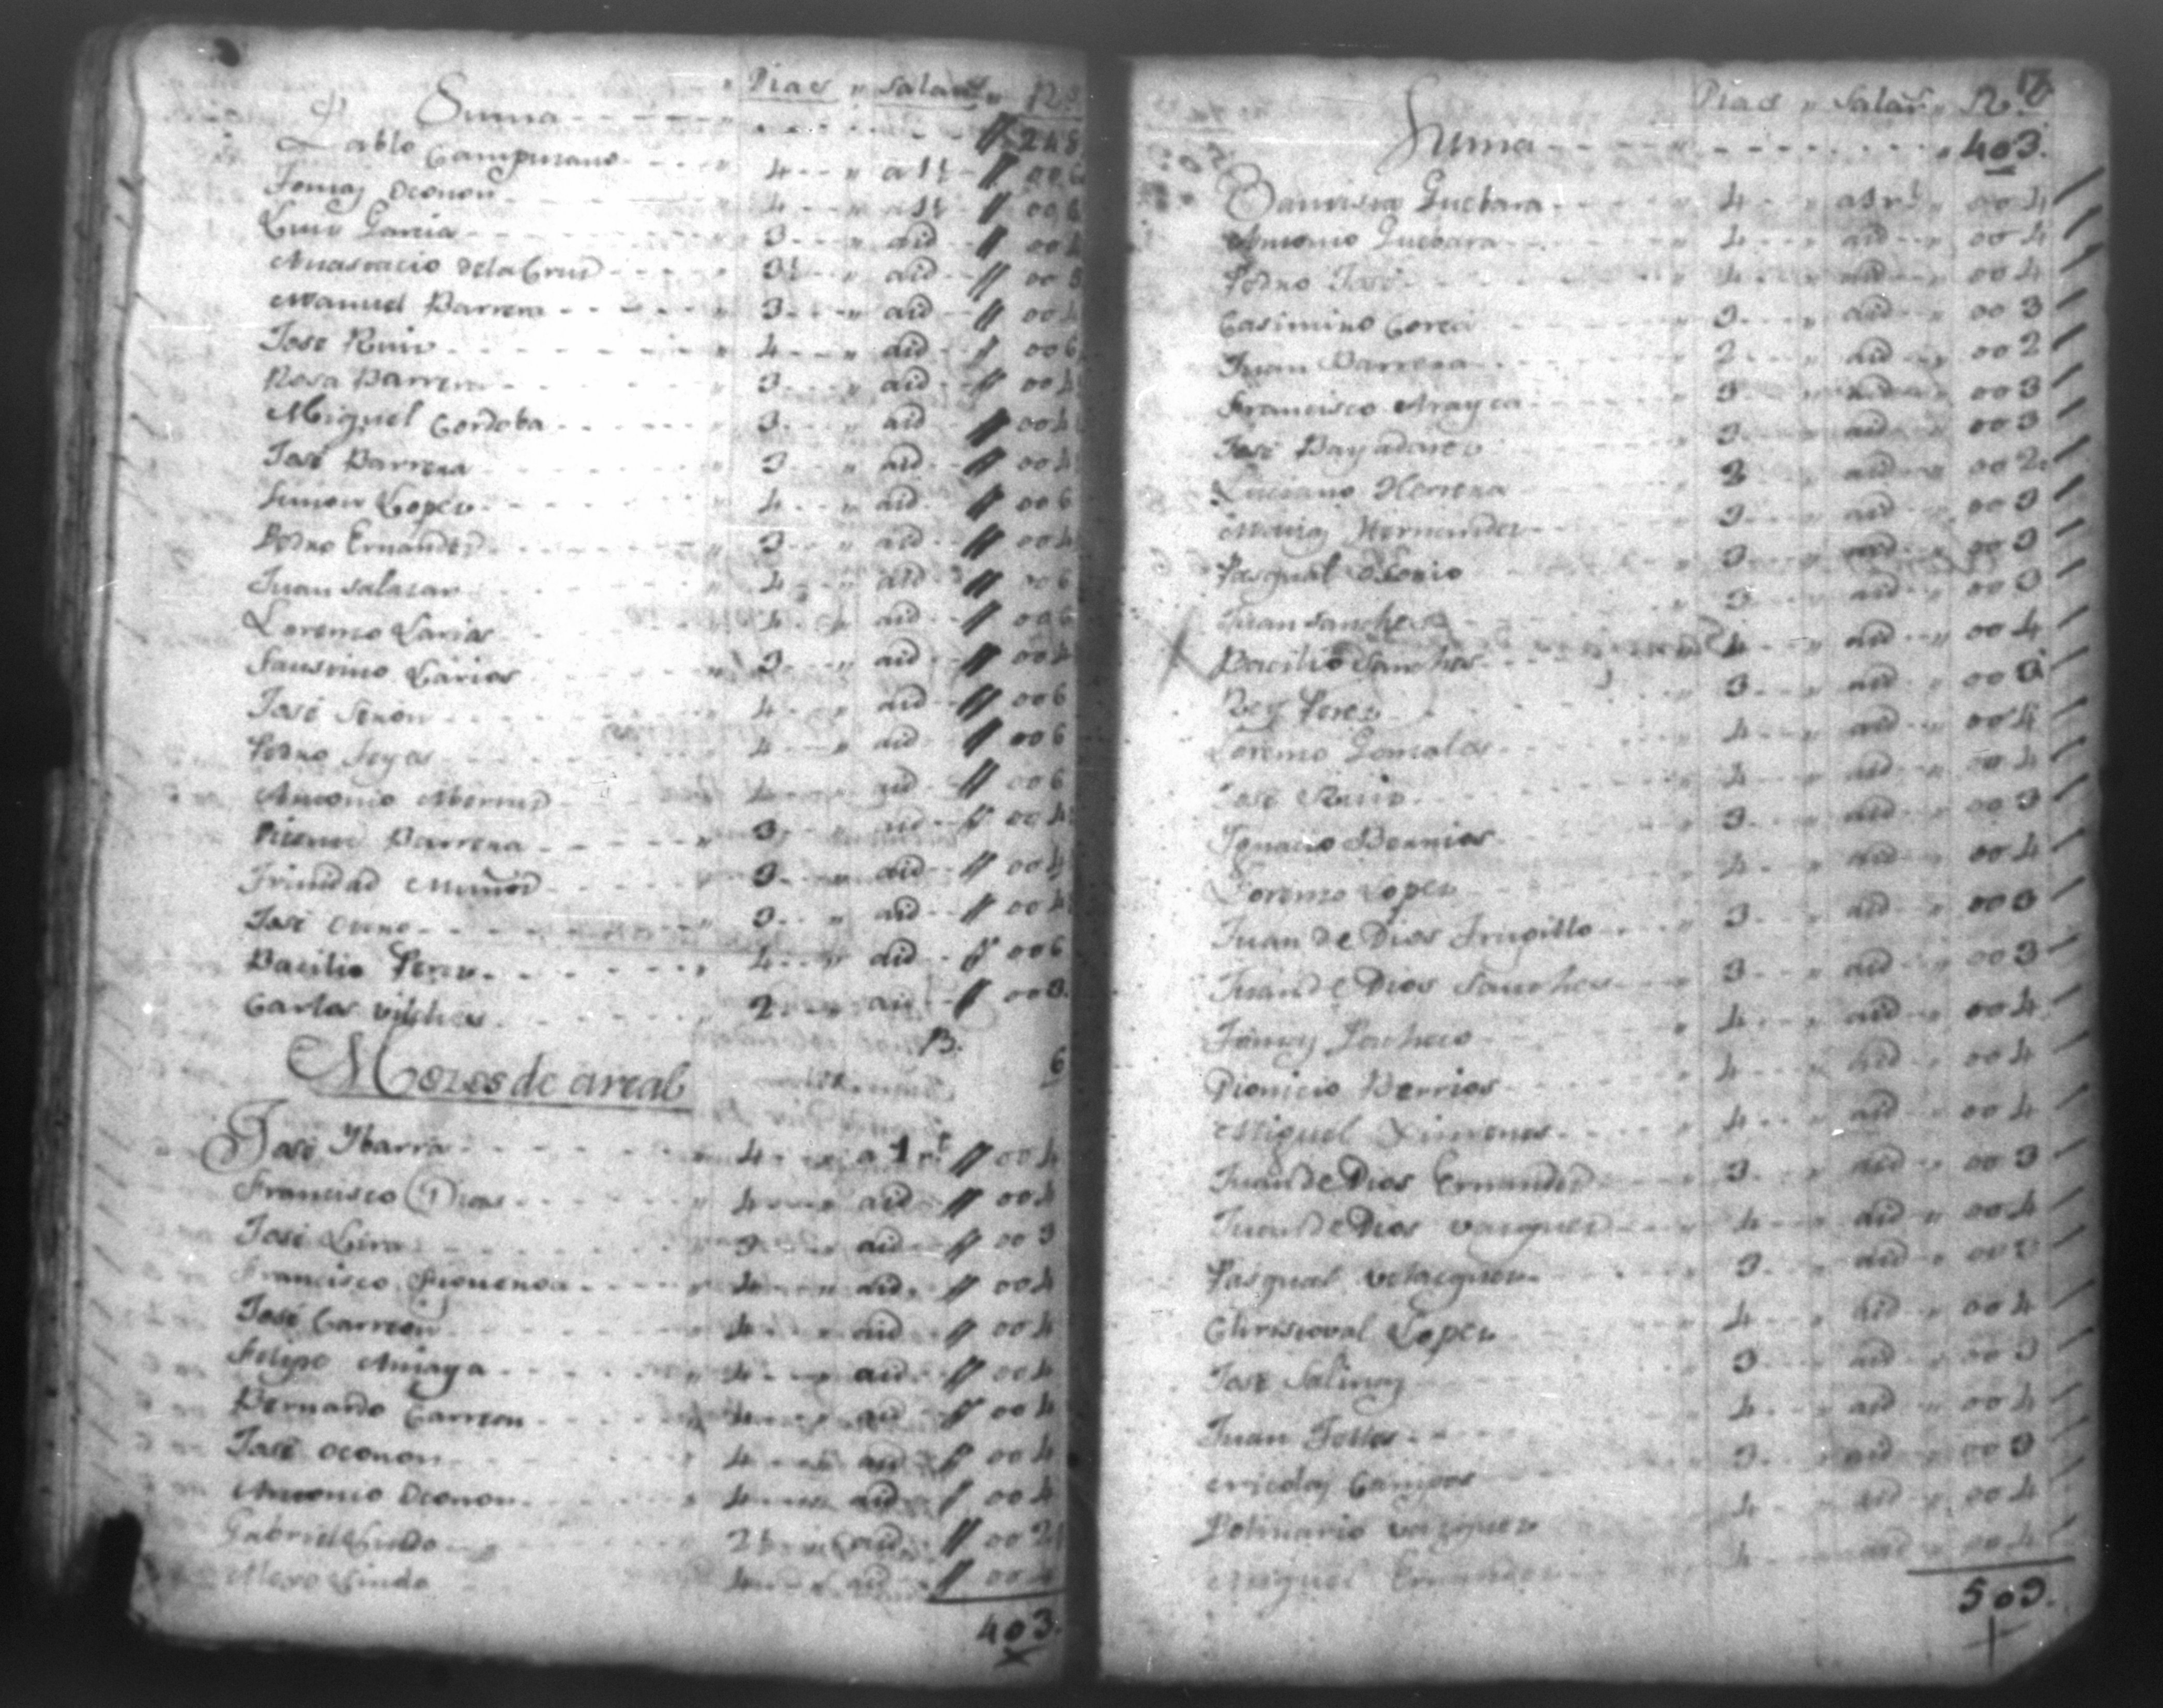 Dias " Salar.s " R.s
Suma " 248
Pablo Campusano 4 " a 1½ 006
Tomas Oconon 4 " a 1½ 006
Luis Garcia 3 " aid 004
Anastacio dela Cruz 3½ " aid 005
Manuel Barrera 3 " aid 004
José Ruiz 4 " aid 006
Rosa Barrera 3 " aid 004
Miguel Cordoba 3 " aid 004
José Barrera 3 " aid 004
Simon Lopez 4 " aid 006
Pedro Ernandez 3 " aid 004
Juan Salazar 4 " aid 006
Lorenzo Larias 4 " aid 006
Faustino Larias 3 " aid 004
José Senon 4 " aid 006
Pedro Seyas 4 " aid 006
Antonio 4 " aid 006
Barrera 3 " aid 004
Trinidad Muñoz 3 " aid 004
José 3 " aid 004
Bacilio Perez 4 " aid 006
Carlos Vilches 2 " aid 003
B. 6
Mozos de areal
José Ybarra 4 a 1 r.l 004
Francisco Dias 4 " aid 004
José Lira 3 " aid 003
Francisco Siguenza 4 " aid 004
José Carreon 4 " aid 004
Felipe Amaya 4 " aid 004
Bernardo Carreon 4 " aid 004
José Oconon 4 " aid 004
Antonio Oconon 4 " aid 004
Gabriel Lindo 2½ " aid 002
Lindo 4 " aid 004
403.
17
Dias " Salar.s " R.s
Suma " 403.
Bautista Guebara 4 " a 1 r.l " 004
Antonio Guebara 4 " aid " 004
Pedro José 4 " aid " 004
Casimiro 3 " aid " 003
Juan Barrera 2 " aid " 002
Francisco Arayca 3 " aid " 003
José Bayadares 3 " aid " 003
Luciano Herrera 2 " aid " 002
Hernandez 3 " aid " 003
Pasqual Osorio 3 " aid " 003
Juan Sanches 3 " aid " 003
Bacilio Sanches 4 " aid " 004
Perez 3 " aid " 003
Lorenzo Gonzales 4 " aid " 004
José Ruiz 4 " aid " 004
Ygnacio Berrios 3 " aid " 003
Lorenzo Lopez 4 " aid " 004
Juan de Dios Trugillo 3 " aid " 003
Juan de Dios Sanches 3 " aid " 003
Tomas Pacheco 4 " aid " 004
Dionicio Berrios 4 " aid " 004
Miguel Ximenes 4 " aid " 004
Juan de Dios Ernandez 3 " aid " 003
Juan de Dios Vasquez 4 " aid " 004
Pasqual Velasquez 3 " aid " 003
Christoval Lopez 4 " aid " 004
José Salinas 3 " aid " 003
Juan 4 " aid " 004
Nicolas Campos 3 " aid " 003
Polinario Vazquez 4 " aid " 004
Miguel Ernandez 4 " aid " 004
503.